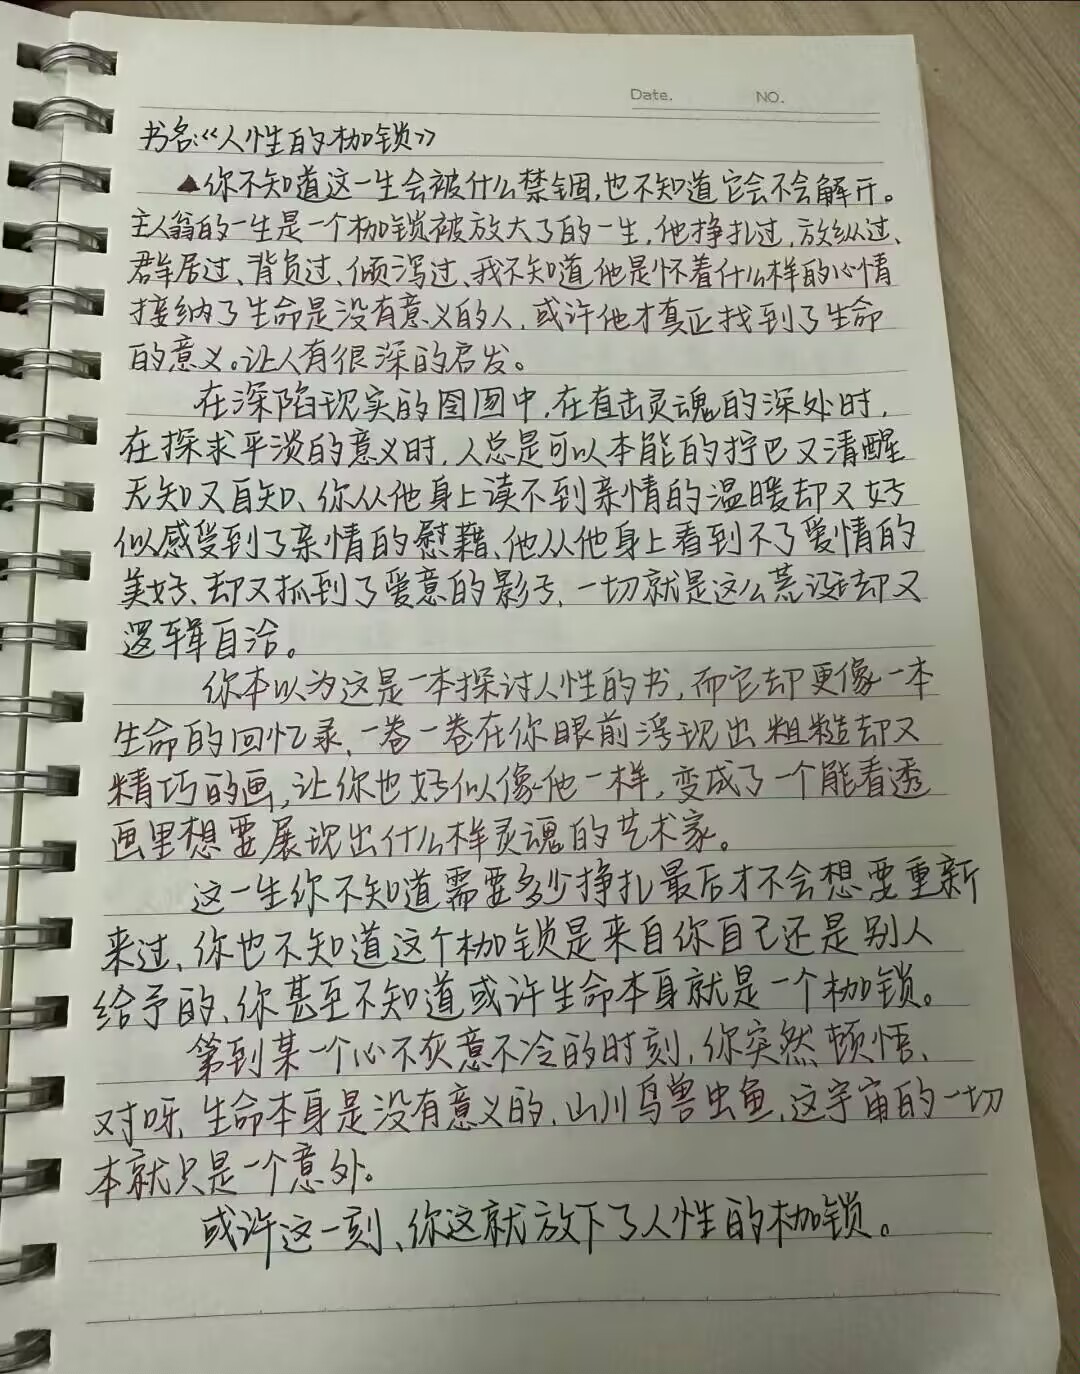 Date.    NO.
书名:《人性的枷锁》
▲你不知道这一生会被什么禁锢,也不知道它会不会解开。
主人翁的一生是一个枷锁被放大了的一生,他挣扎过,放纵过、
群居过、背负过、倾泻过、我不知道他是怀着什么样的心情
接纳了生命是没有意义的人,或许他才真正找到了生命
的意义。让人有很深的启发。
在深陷现实的囹圄中,在直击灵魂的深处时,
在探求平淡的意义时,人总是可以本能的拧巴又清醒
无知又自知、你从他身上读不到亲情的温暖却又好
似感受到了亲情的慰藉、他从他身上看到不了爱情的
美好、却又抓到了爱意的影子、一切就是这么荒诞却又
逻辑自洽。
你本以为这是一本探讨人性的书,而它却更像一本
生命的回忆录,一卷一卷在你眼前浮现出粗糙却又
精巧的画,让你也好似像他一样,变成了一个能看透
画里想要展现出什么样灵魂的艺术家。
这一生你不知道需要多少挣扎最后才不会想要重新
来过、你也不知道这个枷锁是来自你自己还是别人
给予的、你甚至不知道或许生命本身就是一个枷锁。
等到某一个心不灰意不冷的时刻,你突然顿悟、
对呀,生命本身是没有意义的,山川鸟兽虫鱼,这宇宙的一切
本就只是一个意外。
或许这一刻、你这就放下了人性的枷锁。